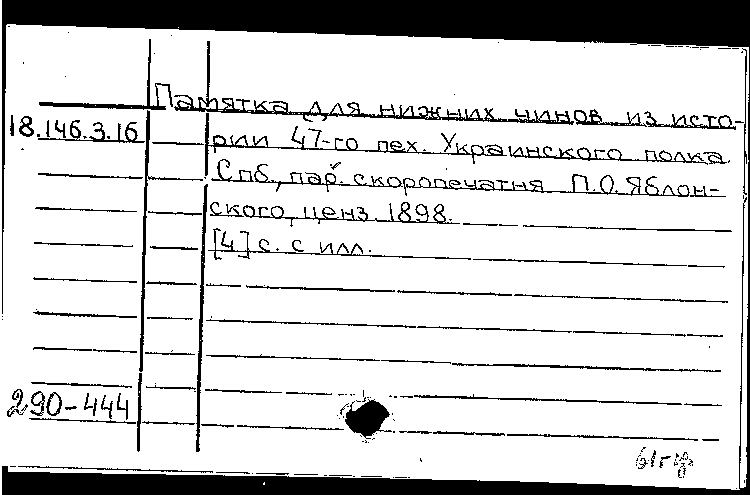 Памятка для нижних чинов из исто-
18.146.3.16 рии 47-го пех. Украинского полка
Спб., пар. скоропечатня П.О. Яблон-
ского, ценз. 1898.
[4] с. с илл.
290-444